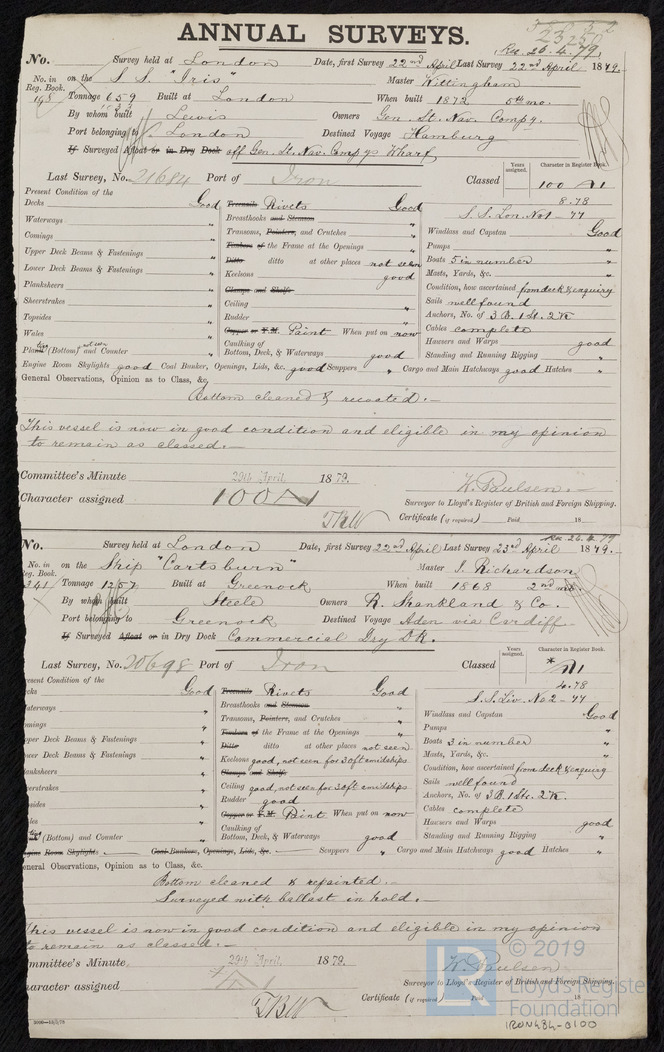 ANNUAL SURVEYS.
23250
Rec. 26.4.79,
No. Survey held at London Date, first Survey 22nd April Last Survey 22nd April 1879.
No. in Reg. Book. on the S.S. "Iris" Master Wittingham
198 Tonnage 659 Built at London When built 1872 5th mo.
By whom built Lewis Owners Gen. St. Nav. Compy.
Port belonging to London Destined Voyage Hamburg
If Surveyed Afloat or in Dry Dock off Gen. St. Nav. Compy's Wharf
Last Survey, No. 21684 Port of Iron Classed Years assigned. Character in Register Book.
100 A1
8.78
S.S. Lon. No1 - 77
Present Condition of the
Decks Good Treenails Rivets Good
Waterways " Breasthooks and Stemson " Windlass and Capstan Good
Comings " Transoms, Pointers, and Crutches " Pumps "
Upper Deck Beams & Fastenings " Timbers of the Frame at the Openings " Boats 5 in number "
Lower Deck Beams & Fastenings " Ditto ditto at other places not seen Masts, Yards, &c. "
Planksheers " Keelsons good Condition, how ascertained from deck & enquiry
Sheerstrakes " Clamps and Shelfs Sails well found
Topsides " Ceiling " Anchors, No. of 3 B. 1 St. 2 K.
Wales " Rudder " Cables complete
Plating (Bottom) not seen and Counter " Copper or Y.M. Paint When put on now Hawsers and Warps good
Caulking of Bottom, Deck, & Waterways good Standing and Running Rigging "
Engine Room Skylights good Coal Bunker, Openings, Lids, &c. good Scuppers " Cargo and Main Hatchways good Hatches "
General Observations, Opinion as to Class, &c.
Bottom cleaned & recoated.-
This vessel is now in good condition and eligible in my opinion
to remain as classed.-
Committee's Minute 29th April 1879.
Character assigned 100A1
W. Paulsen.-
Surveyor to Lloyd's Register of British and Foreign Shipping.
Certificate (if required) Paid 18
Rec. 26.4.79
No. Survey held at London Date, first Survey 22nd April Last Survey 23rd April 1879.
No. in Reg. Book. on the Ship "Cartsburn" Master J. Richardson
341 Tonnage 1257 Built at Greenock When built 1868 2nd mo.
By whom built Steele Owners R. Shankland & Co.
Port belonging to Greenock Destined Voyage Aden via Cardiff
If Surveyed Afloat or in Dry Dock Commercial Dry Dk.
Last Survey, No. 20698 Port of Iron Classed Years assigned. Character in Register Book.
* A1
4.78
S.S. Liv. No 2 - 77
Present Condition of the
Decks Good Treenails Rivets Good
Waterways " Breasthooks and Stemson " Windlass and Capstan Good
Comings " Transoms, Pointers, and Crutches " Pumps "
Upper Deck Beams & Fastenings " Timbers of the Frame at the Openings " Boats 3 in number "
Lower Deck Beams & Fastenings " Ditto ditto at other places not seen Masts, Yards, &c. "
Planksheers " Keelsons good, not seen for 30ft amidships Condition, how ascertained from deck & enquiry
Sheerstrakes " Clamps and Shelfs Sails well found
Topsides " Ceiling good, not seen for 30ft amidships Anchors, No. of 3 B. 1 St. 2 K.
Wales " Rudder good Cables complete
Plating (Bottom) and Counter " Copper or Y.M. Paint When put on now Hawsers and Warps good
Caulking of Bottom, Deck, & Waterways good Standing and Running Rigging "
Engine Room Skylights Coal Bunker, Openings, Lids, &c. Scuppers " Cargo and Main Hatchways good Hatches "
General Observations, Opinion as to Class, &c.
Bottom cleaned & repainted.-
Surveyed with ballast in hold.-
This vessel is now in good condition and eligible in my opinion
to remain as classed.-
Committee's Minute 29th April 1879.
Character assigned A1
W. Paulsen
Surveyor to Lloyd's Register of British and Foreign Shipping.
Certificate (if required) Paid 18
LR
© 2019
Lloyd's Register
Foundation
IRON484-0100